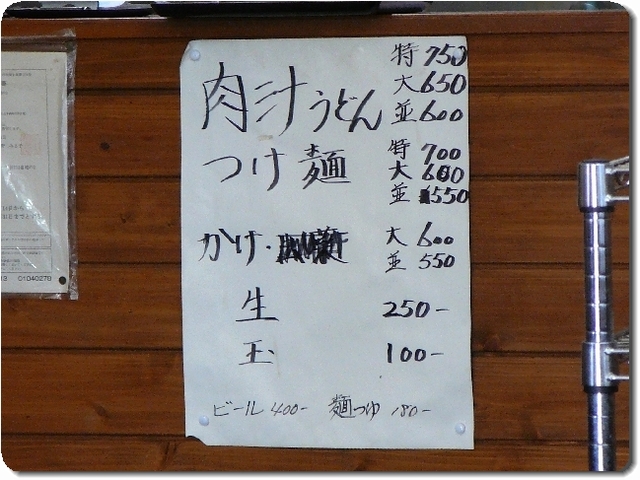 肉汁うどん 特 750
大 650
並 600
つけ麺 特 700
大 600
並 550
かけ・ 大 600
並 550
生 250-
玉 100-
ビール 400- 麺つゆ 180-
01040278